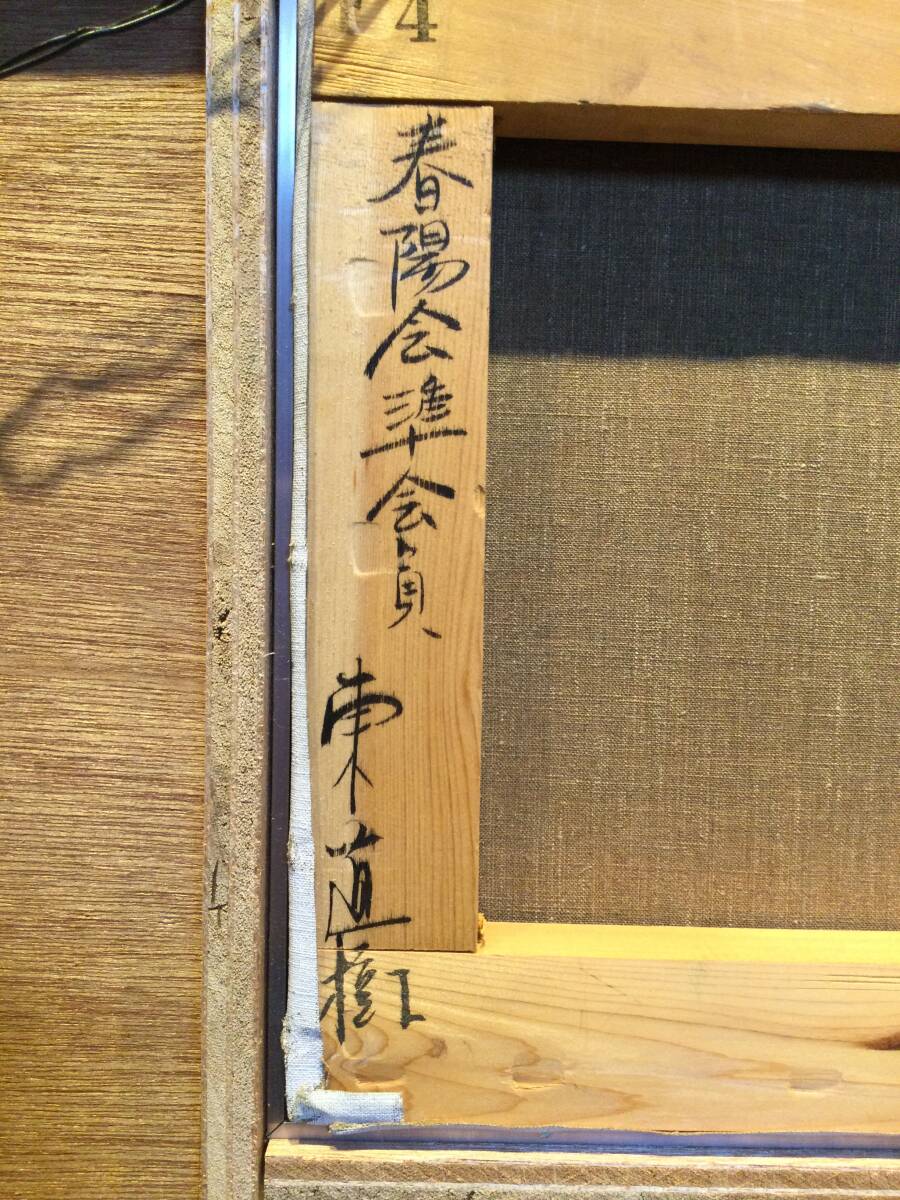 4
春陽会準会員
東直樹